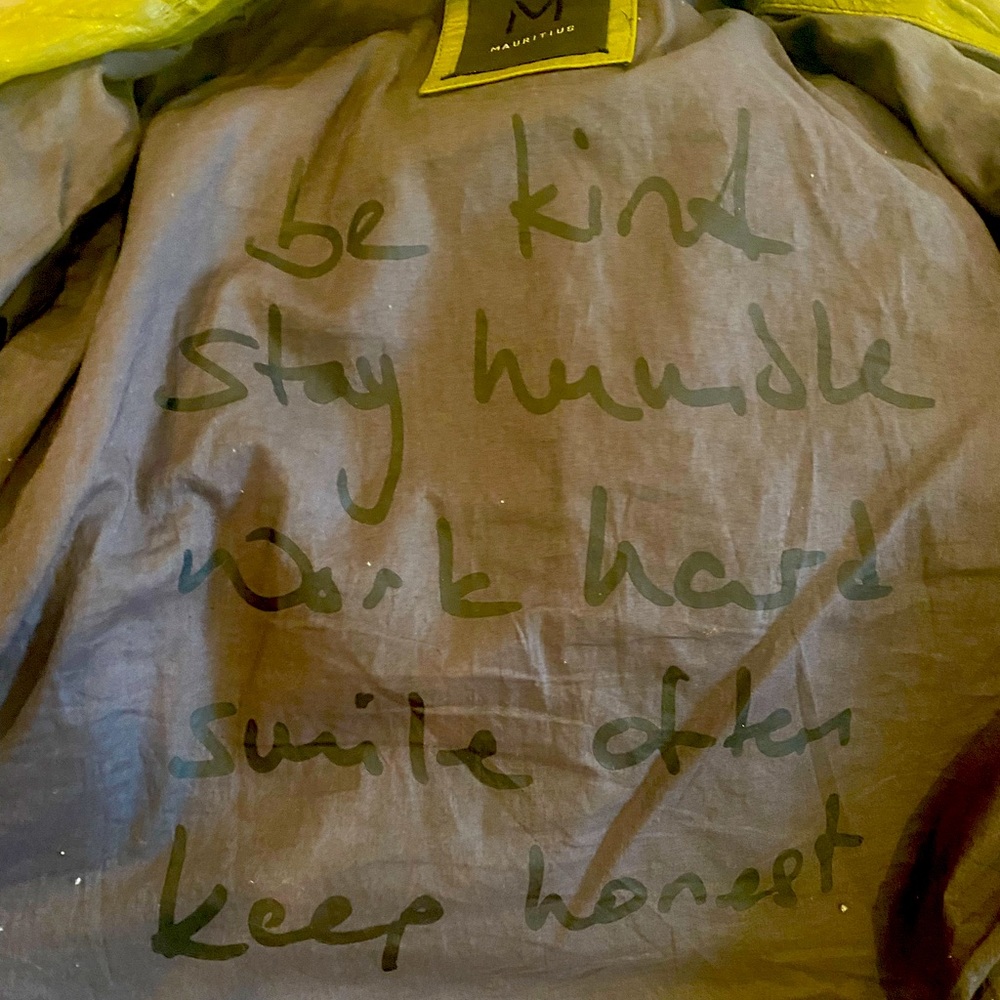 M
MAURITIUS
be kind
stay humble
work hard
smile often
keep honest